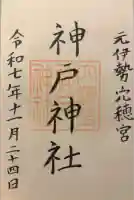 元伊勢穴穂宮
神戸神社
令和七年十一月二十四日